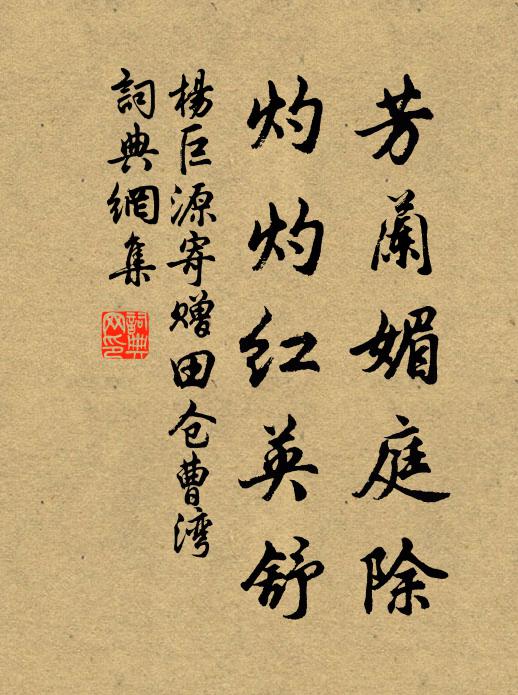 芳蘭媚庭除
灼灼红英舒
楊巨源寄赠田仓曹湾
詞典網集
詞典網印